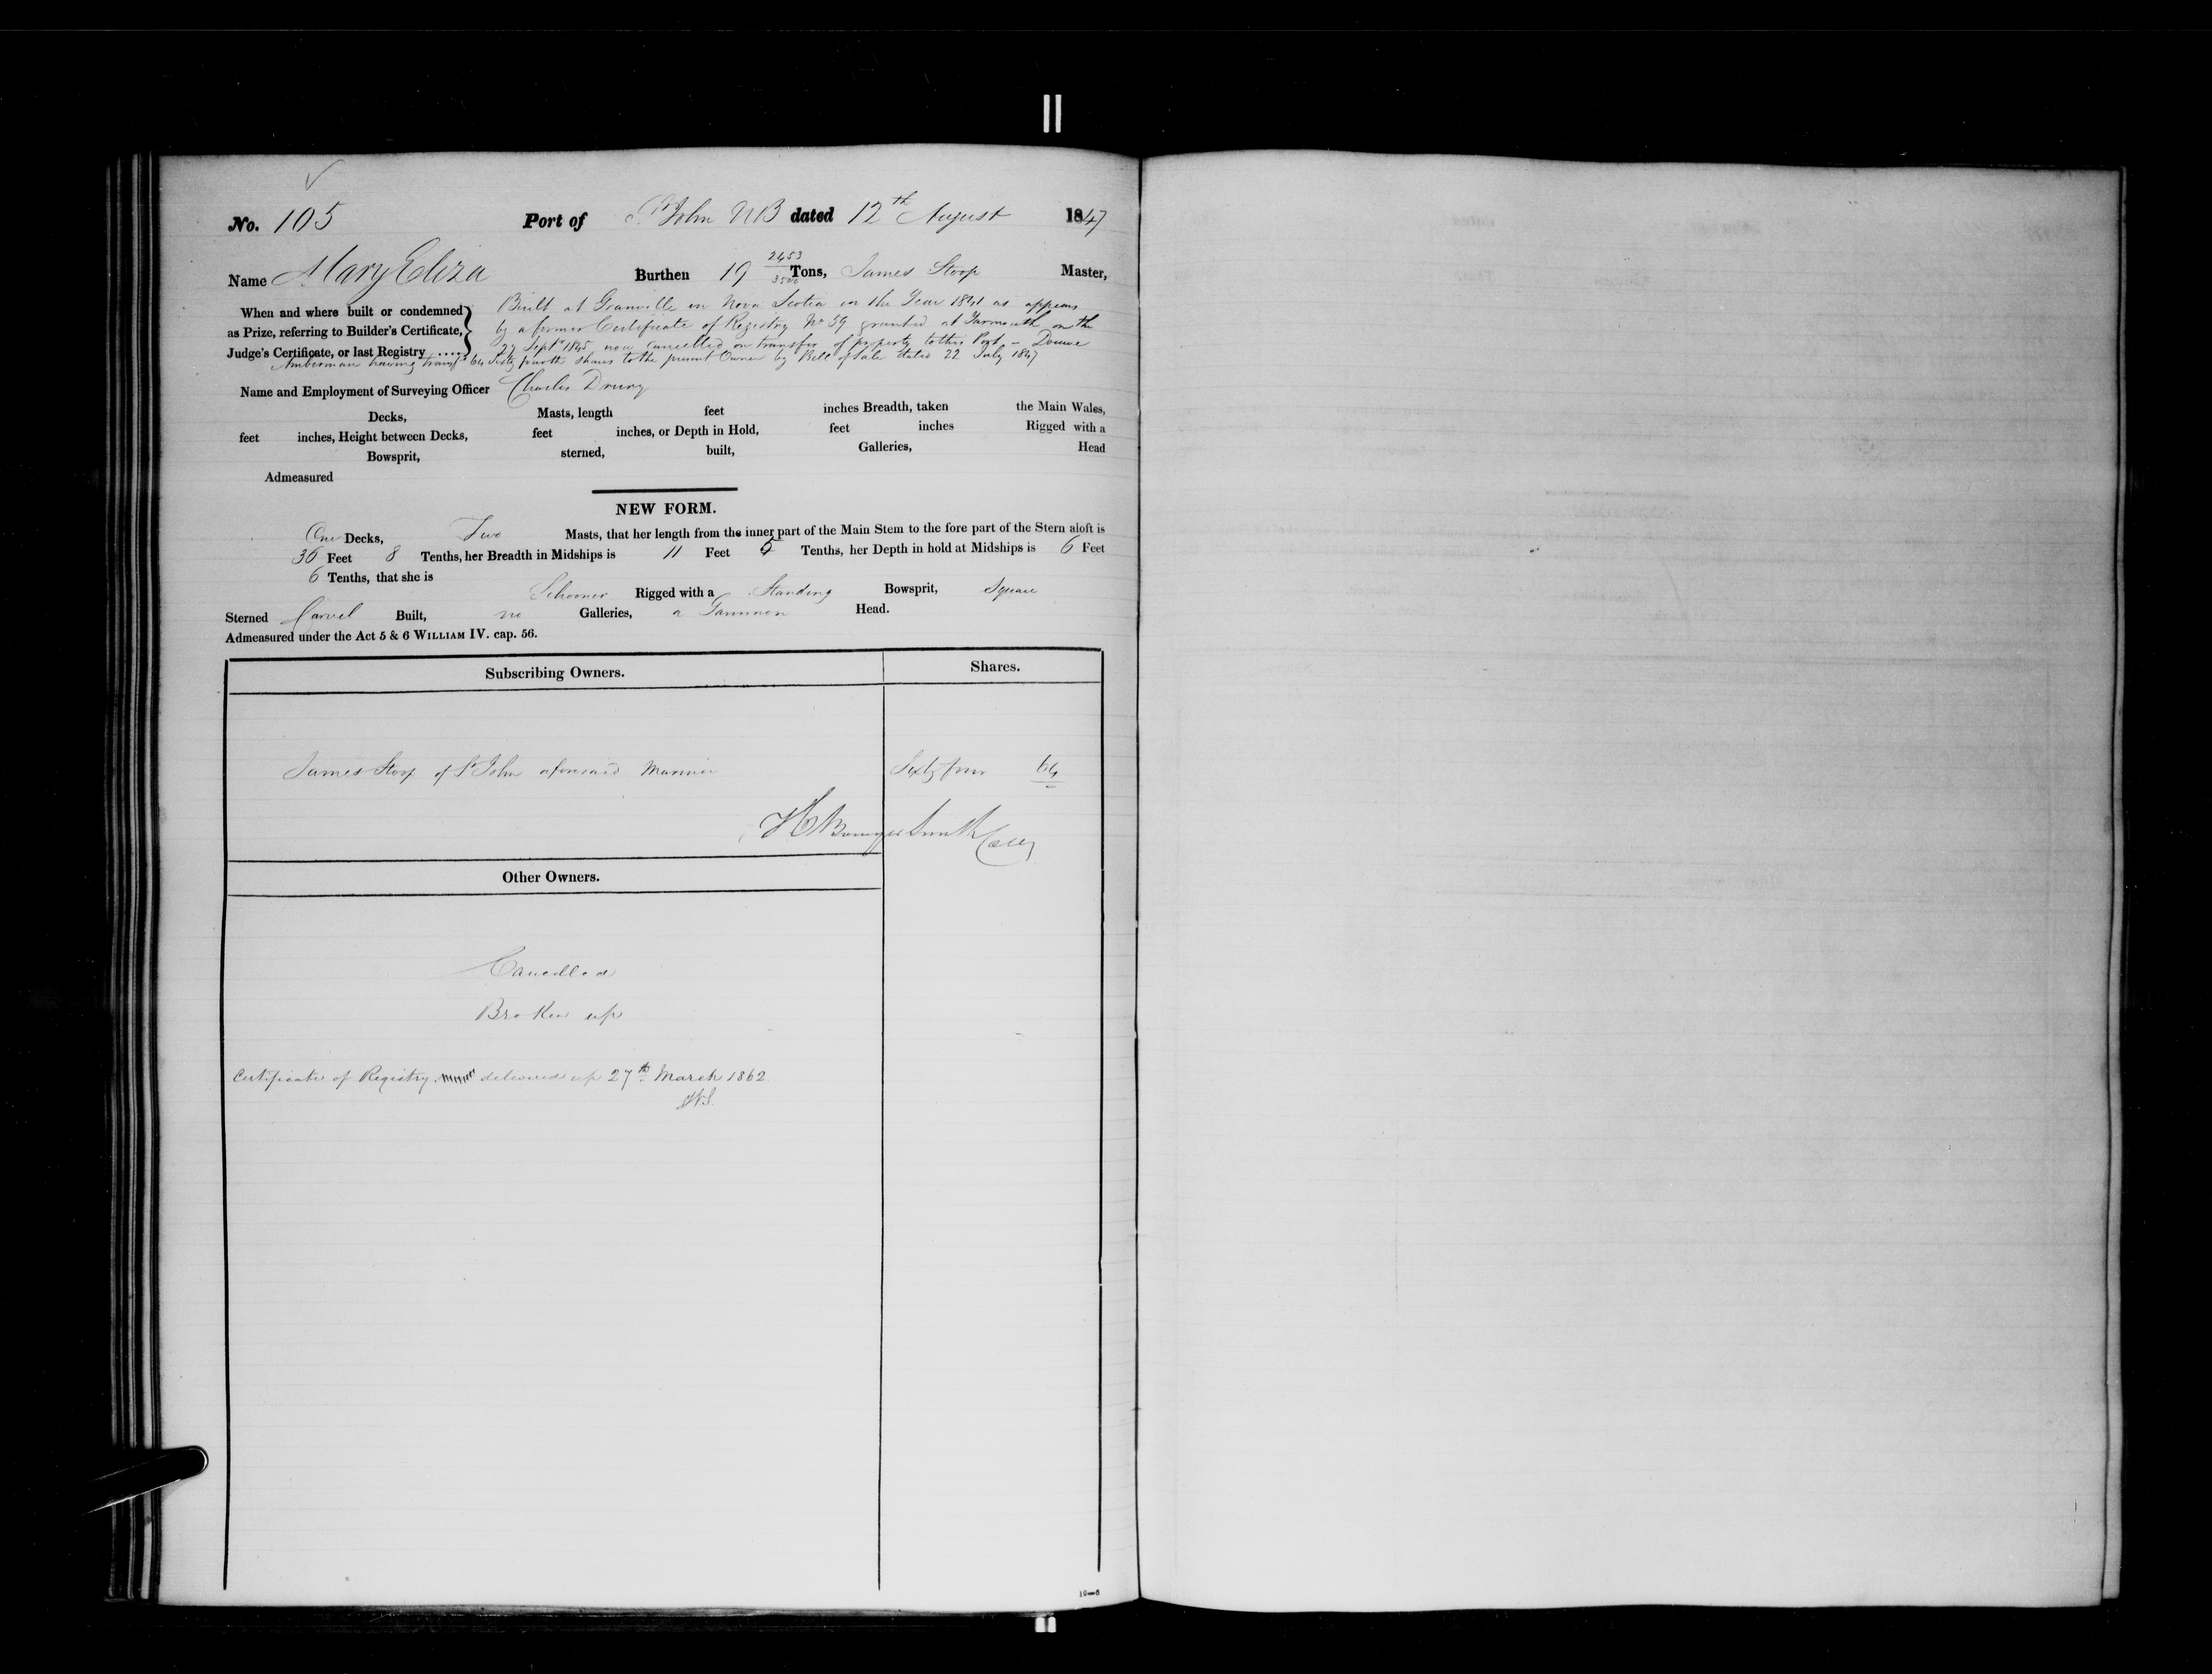 No. 105 Port of St John NB dated 12th August 1847
Name Mary Eliza Burthen 19 2453/3500 Tons, James Stoop Master,
When and where built or condemned as Prize, referring to Builder's Certificate, Judge's Certificate, or last Registry .....
Built at Granville in Nova Scotia in the Year 1841 as appears
by a former Certificate of Registry No 39 granted at Yarmouth on the
27 Septr 1845 now cancelled on transfer of property to this Port, -
Amberman having transfd 64 Sixty fourth shares to the present Owner by Bill of Sale dated 22 July 1847
Name and Employment of Surveying Officer Charles Drury
Decks, Masts, length feet inches Breadth, taken the Main Wales,
feet inches, Height between Decks, feet inches, or Depth in Hold, feet inches Rigged with a
Bowsprit, sterned, built, Galleries, Head
Admeasured
NEW FORM.
One Decks, Two Masts, that her length from the inner part of the Main Stem to the fore part of the Stern aloft is
36 Feet 8 Tenths, her Breadth in Midships is 11 Feet 5 Tenths, her Depth in hold at Midships is 6 Feet
6 Tenths, that she is
Schooner Rigged with a Standing Bowsprit, Square
Sterned Carvel Built, no Galleries, a Gammon Head.
Admeasured under the Act 5 & 6 WILLIAM IV. cap. 56.
Subscribing Owners. Shares.
James Stoop of St John aforesaid Mariner Sixty four 64
Smith
Other Owners.
Cancelled
Broken up
Certificate of Registry delivered up 27th March 1862
10—6